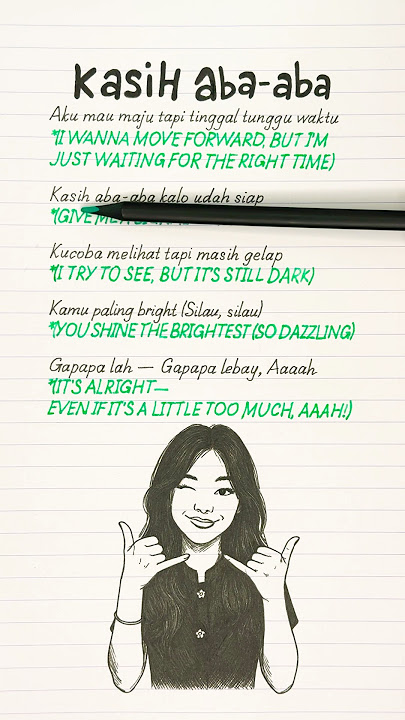 Kasih aba-aba
Aku mau maju tapi tinggal tunggu waktu
*(I WANNA MOVE FORWARD, BUT I'M
JUST WAITING FOR THE RIGHT TIME)
Kasih aba-aba kalo udah siap
*(GIVE ME A
Kucoba melihat tapi masih gelap
*(I TRY TO SEE, BUT IT'S STILL DARK)
Kamu paling bright (Silau, silau)
*(YOU SHINE THE BRIGHTEST (SO DAZZLING)
Gapapa lah — Gapapa lebay, Aaaah
*(IT'S ALRIGHT—
EVEN IF IT'S A LITTLE TOO MUCH, AAAH!)